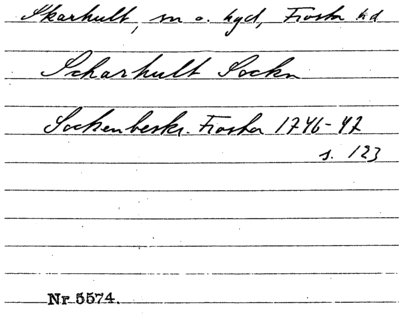 Skarhult, sn o. kyd, Frosta hd
Scharhult Sockn
Sockenbeskr. Frosta 1746-47
s. 123
Nr 5574.